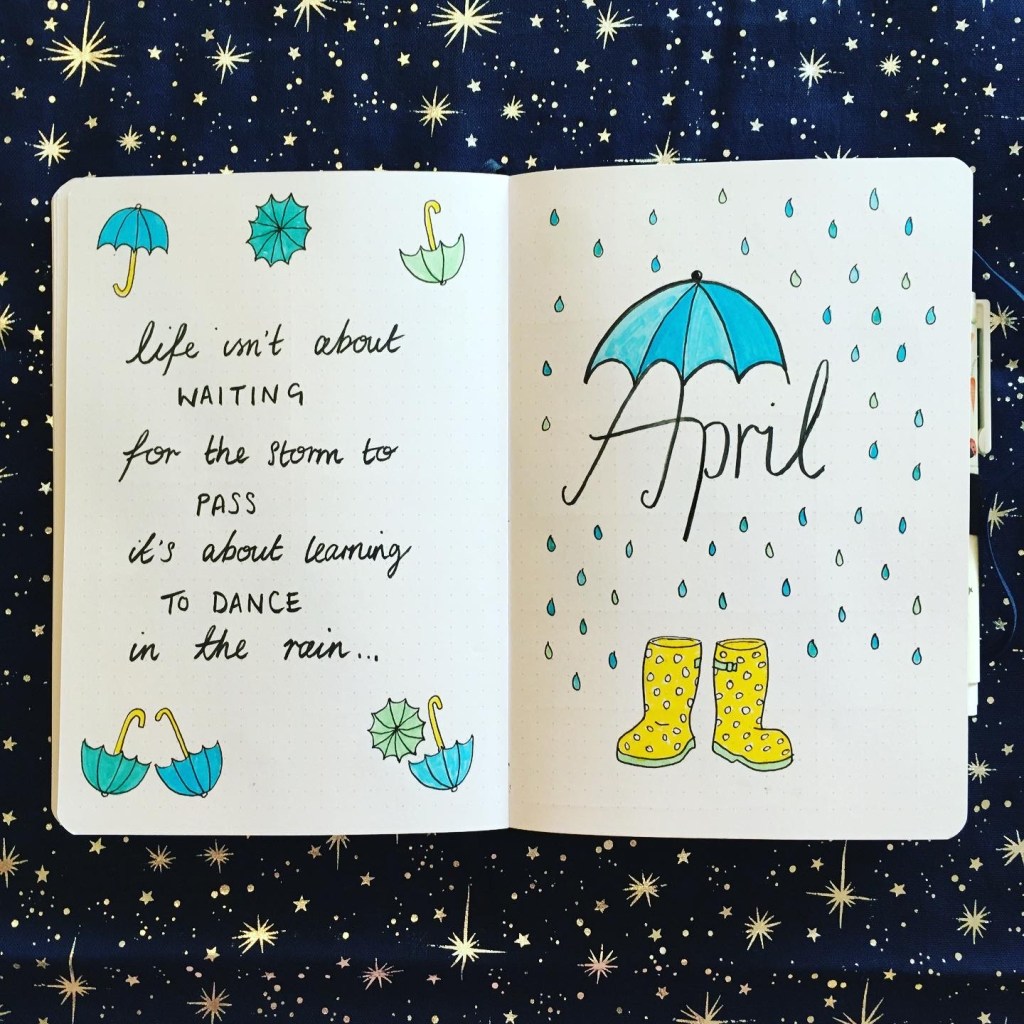 life isn't about
WAITING
for the storm to
PASS
it's about learning
TO DANCE
in the rain...
April